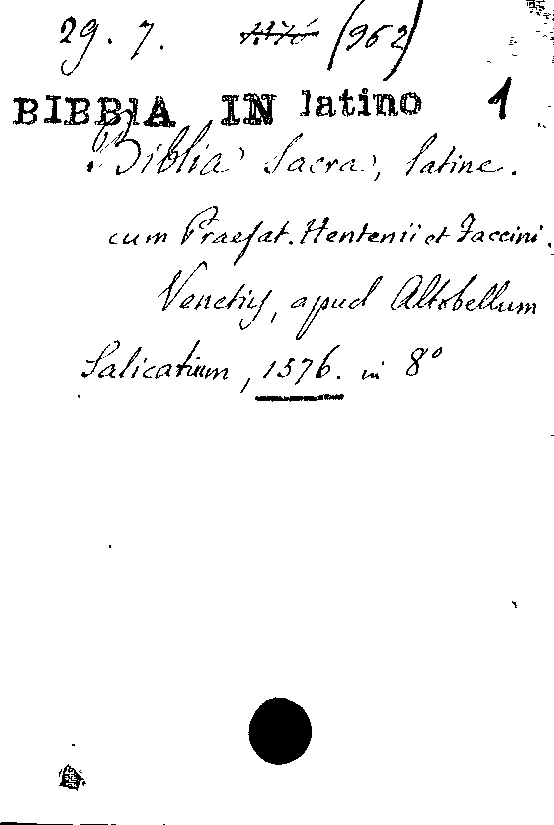 29. 7. (962)
BIBBIA IN latino 1
Biblia Sacra, latine.
cum Praefat. Hentenii et Faccini.
Venetiis, apud Altobellum
Salicatium, 1576. in 8°